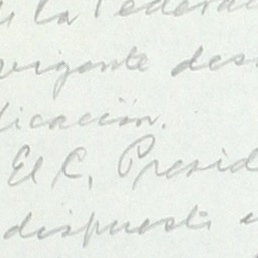 la Federa
vigente des
licación.
El C. Presid
dispuesto e